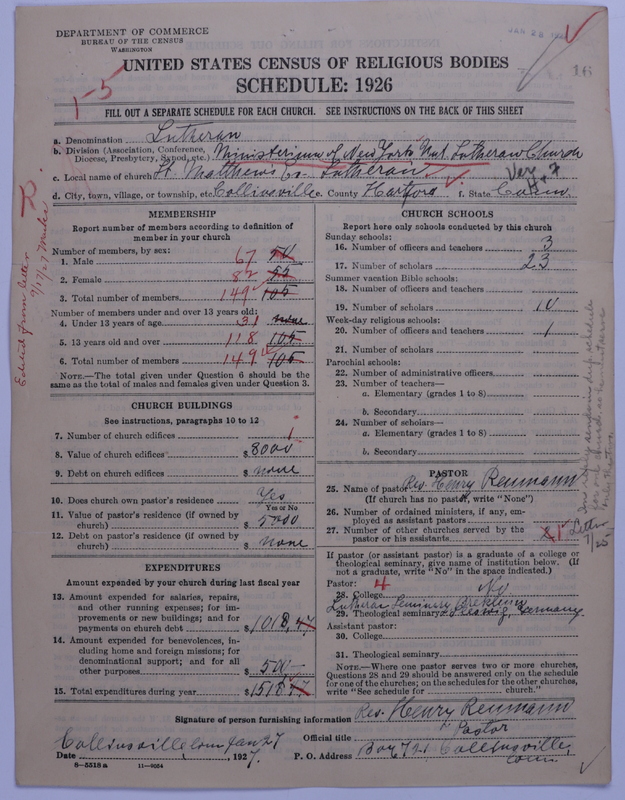 DEPARTMENT OF COMMERCE
BUREAU OF THE CENSUS
WASHINGTON
16
UNITED STATES CENSUS OF RELIGIOUS BODIES
SCHEDULE: 1926
1-5
FILL OUT A SEPARATE SCHEDULE FOR EACH CHURCH. SEE INSTRUCTIONS ON THE BACK OF THIS SHEET
a. Denomination Lutheran
b. Division (Association, Conference, Diocese, Presbytery, Synod, etc.) Ministerium of New York Lutheran Church
c. Local name of church St. Matthews Lutheran
d. City, town, village, or township, etc. Collinsville e. County Hartford f. State Conn.
MEMBERSHIP
Report number of members according to definition of member in your church
Number of members, by sex:
1. Male 67
2. Female 82
3. Total number of members 149 105
Number of members under and over 13 years old:
4. Under 13 years of age 31 none
5. 13 years old and over 118 105
6. Total number of members 149 105
NOTE.—The total given under Question 6 should be the same as the total of males and females given under Question 3.
CHURCH BUILDINGS
See instructions, paragraphs 10 to 12
7. Number of church edifices 1
8. Value of church edifices $ 8000
9. Debt on church edifices $ none
10. Does church own pastor's residence Yes
Yes or No
11. Value of pastor's residence (if owned by church) $ 5000
12. Debt on pastor's residence (if owned by church) $ none
EXPENDITURES
Amount expended by your church during last fiscal year
13. Amount expended for salaries, repairs, and other running expenses; for improvements or new buildings; and for payments on church debt $ 1018,47
14. Amount expended for benevolences, including home and foreign missions; for denominational support; and for all other purposes $ 500
15. Total expenditures during year $ 1518 47
CHURCH SCHOOLS
Report here only schools conducted by this church
Sunday schools:
16. Number of officers and teachers 3
17. Number of scholars 23
Summer vacation Bible schools:
18. Number of officers and teachers
19. Number of scholars 10
Week-day religious schools:
20. Number of officers and teachers 1
21. Number of scholars
Parochial schools:
22. Number of administrative officers
23. Number of teachers—
a. Elementary (grades 1 to 8)
b. Secondary
24. Number of scholars—
a. Elementary (grades 1 to 8)
b. Secondary
PASTOR
25. Name of pastor Rev. Henry Reumann
(If church has no pastor, write "None")
26. Number of ordained ministers, if any, employed as assistant pastors
27. Number of other churches served by the pastor or his assistants 1
If pastor (or assistant pastor) is a graduate of a college or theological seminary, give name of institution below. (If not a graduate, write "No" in the space indicated.)
Pastor: 4
28. College No
29. Theological seminary Lutheran Seminary Germany
Assistant pastor:
30. College
31. Theological seminary
NOTE.—Where one pastor serves two or more churches, Questions 28 and 29 should be answered only on the schedule for one of the churches; on the schedules for the other churches, write "See schedule for church."
Signature of person furnishing information Rev. Henry Reumann
Official title Pastor
Collinsville Conn Jan 27
Date , 1927. P. O. Address Box 721 Collinsville, Conn.
8-5518a 11-9554